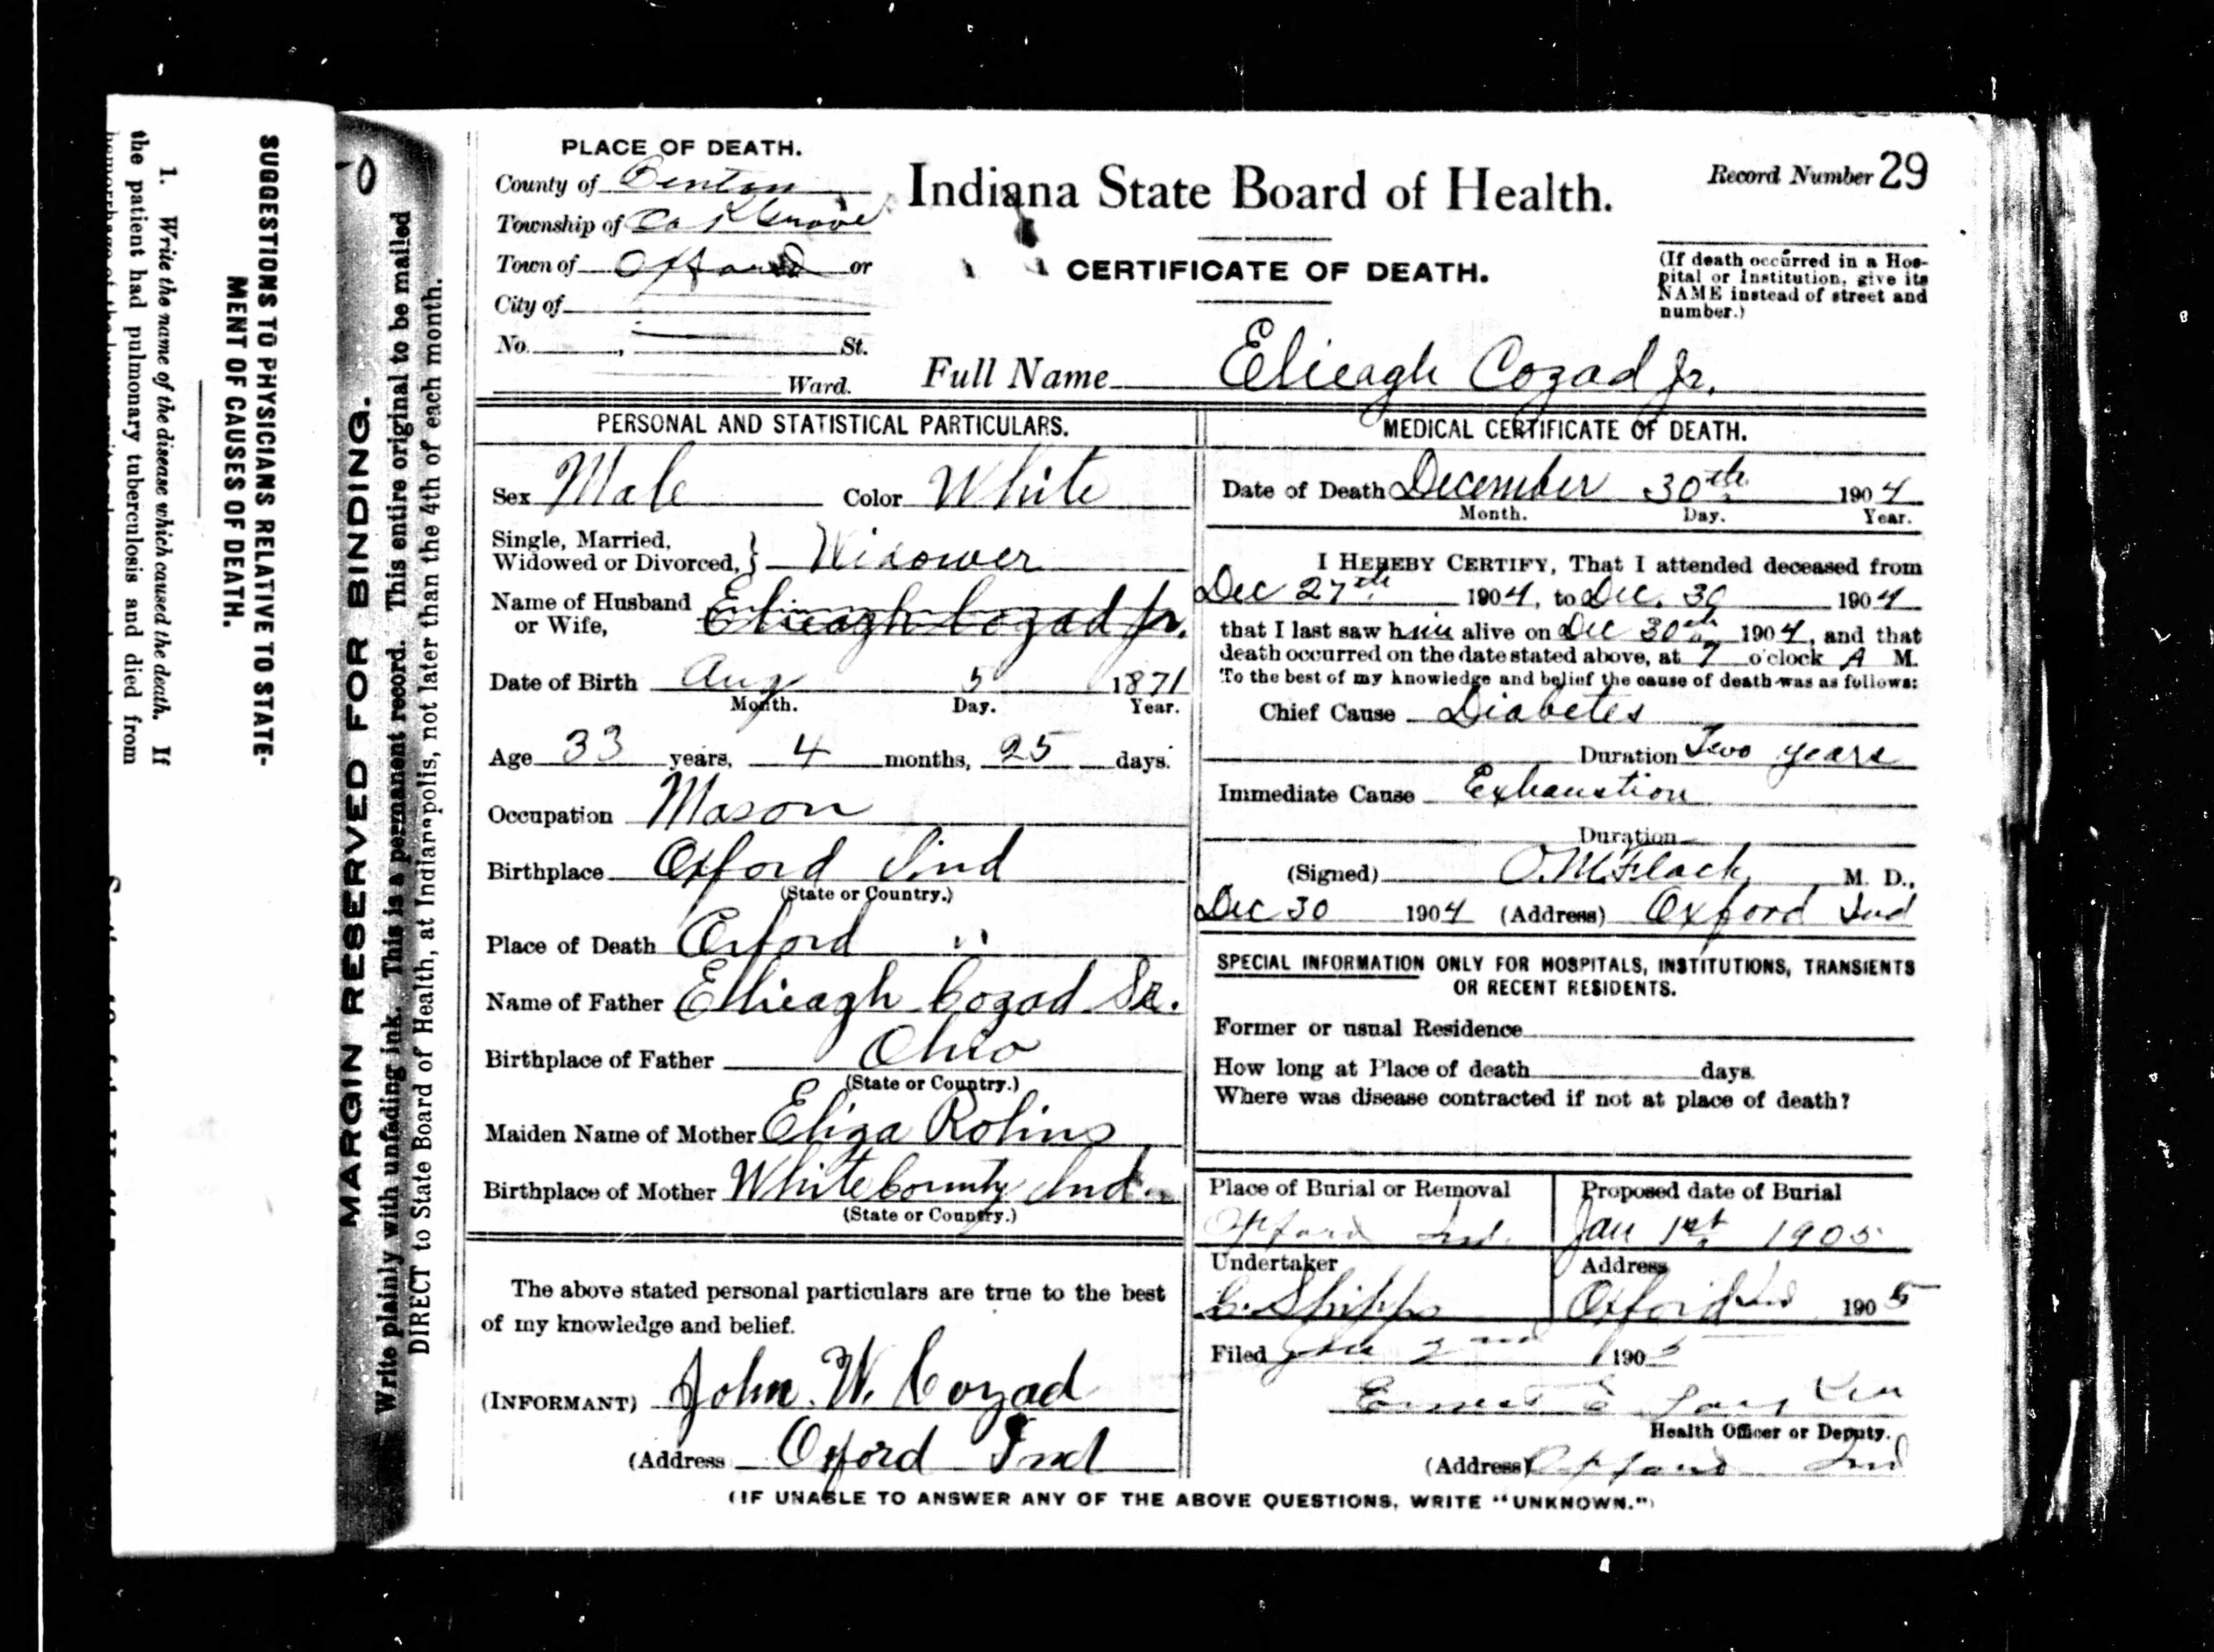 SUGGESTIONS TO PHYSICIANS RELATIVE TO STATE-
MENT OF CAUSES OF DEATH.
1. Write the name of the disease which caused the death. If
the patient had pulmonary tuberculosis and died from
MARGIN RESERVED FOR BINDING.
Write plainly with unfading ink. This is a permanent record. This entire original to be mailed
DIRECT to State Board of Health, at Indianapolis, not later than the 4th of each month.
PLACE OF DEATH.
County of Benton
Township of Oak Grove
Town of Oxford or
City of
No. , St.
Ward.
Indiana State Board of Health.
CERTIFICATE OF DEATH.
Record Number 29
(If death occurred in a Hos-
pital or Institution, give its
NAME instead of street and
number.)
Full Name Elieagh Cozad Jr.
PERSONAL AND STATISTICAL PARTICULARS.
Sex Male Color White
Single, Married,
Widowed or Divorced, } Widower
Name of Husband
or Wife, Elieagh Cozad Jr.
Date of Birth Aug 5 1871
Month. Day. Year.
Age 33 years, 4 months, 25 days.
Occupation Mason
Birthplace Oxford Ind
(State or Country.)
Place of Death Oxford "
Name of Father Elieagh Cozad Sr.
Birthplace of Father Ohio
(State or Country.)
Maiden Name of Mother Eliza Rolins
Birthplace of Mother White County Ind.
(State or Country.)
The above stated personal particulars are true to the best
of my knowledge and belief.
(INFORMANT) John. W. Cozad
(Address Oxford Ind
MEDICAL CERTIFICATE OF DEATH.
Date of Death December 30th 1904
Month. Day. Year.
I HEREBY CERTIFY, That I attended deceased from
Dec 27th 1904, to Dec. 30 1904
that I last saw him alive on Dec 30th 1904, and that
death occurred on the date stated above, at 7 o'clock A M.
To the best of my knowledge and belief the cause of death was as follows:
Chief Cause Diabetes
Duration Two years
Immediate Cause Exhaustion
Duration
(Signed) O. M. Flack, M. D.,
Dec 30 1904 (Address) Oxford Ind
SPECIAL INFORMATION ONLY FOR HOSPITALS, INSTITUTIONS, TRANSIENTS
OR RECENT RESIDENTS.
Former or usual Residence
How long at Place of death days.
Where was disease contracted if not at place of death?
Place of Burial or Removal
Oxford Ind.
Proposed date of Burial
Jan 1st 1905
Undertaker
C. Shipps
Address
Oxford Ind 1905
Filed Jan 2nd 1905
Ernest E
Health Officer or Deputy.
(Address) Oxford Ind
(IF UNABLE TO ANSWER ANY OF THE ABOVE QUESTIONS, WRITE "UNKNOWN.")